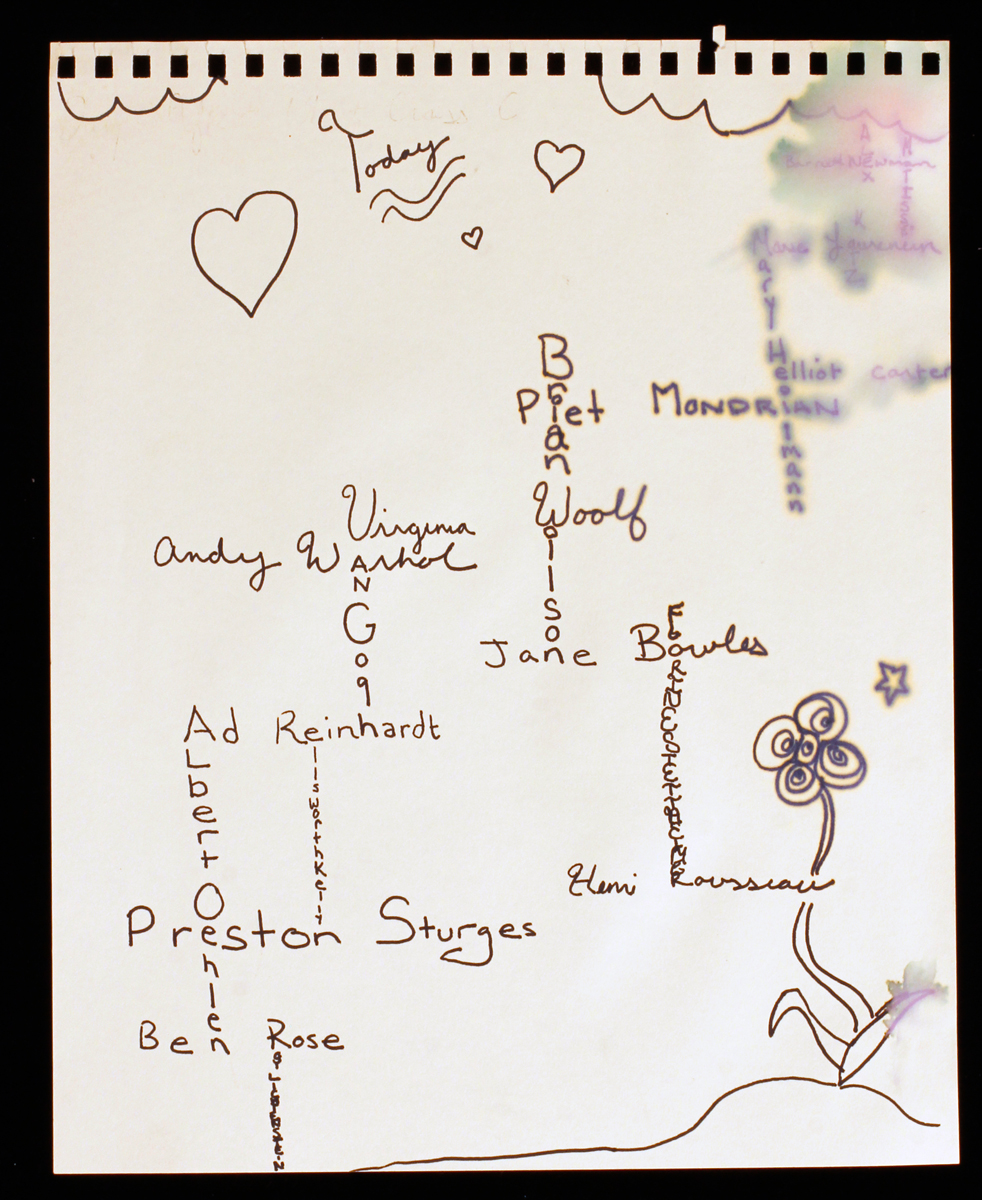 Today
Alex
Barnett Newman
Matisse
Katz
Marie Laurencin
Mary Heilmann
elliot carter
Brian
Piet MONDRIAN
Woolf
Wilson
Virginia
Andy Warhol
VAN Gog
Jane Bowles
Ad Reinhardt
Albert Oehlen
Ellsworth Kelly
Henri Rousseau
Preston Sturges
Ben Rose